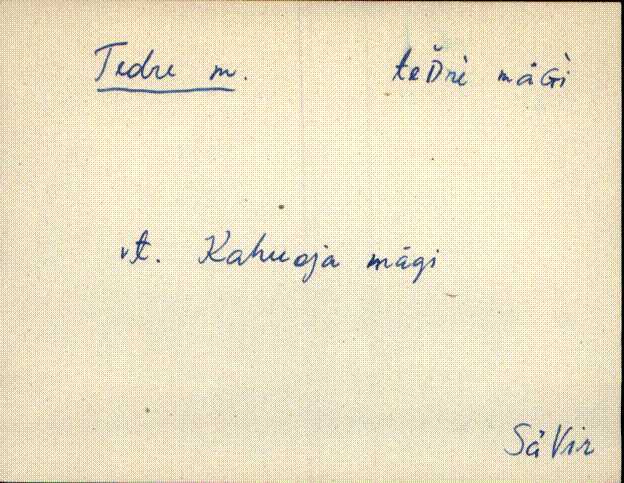 Tedre m. teD̆rè mäG̀i
vt. Kahuoja mägi
Sä Vir